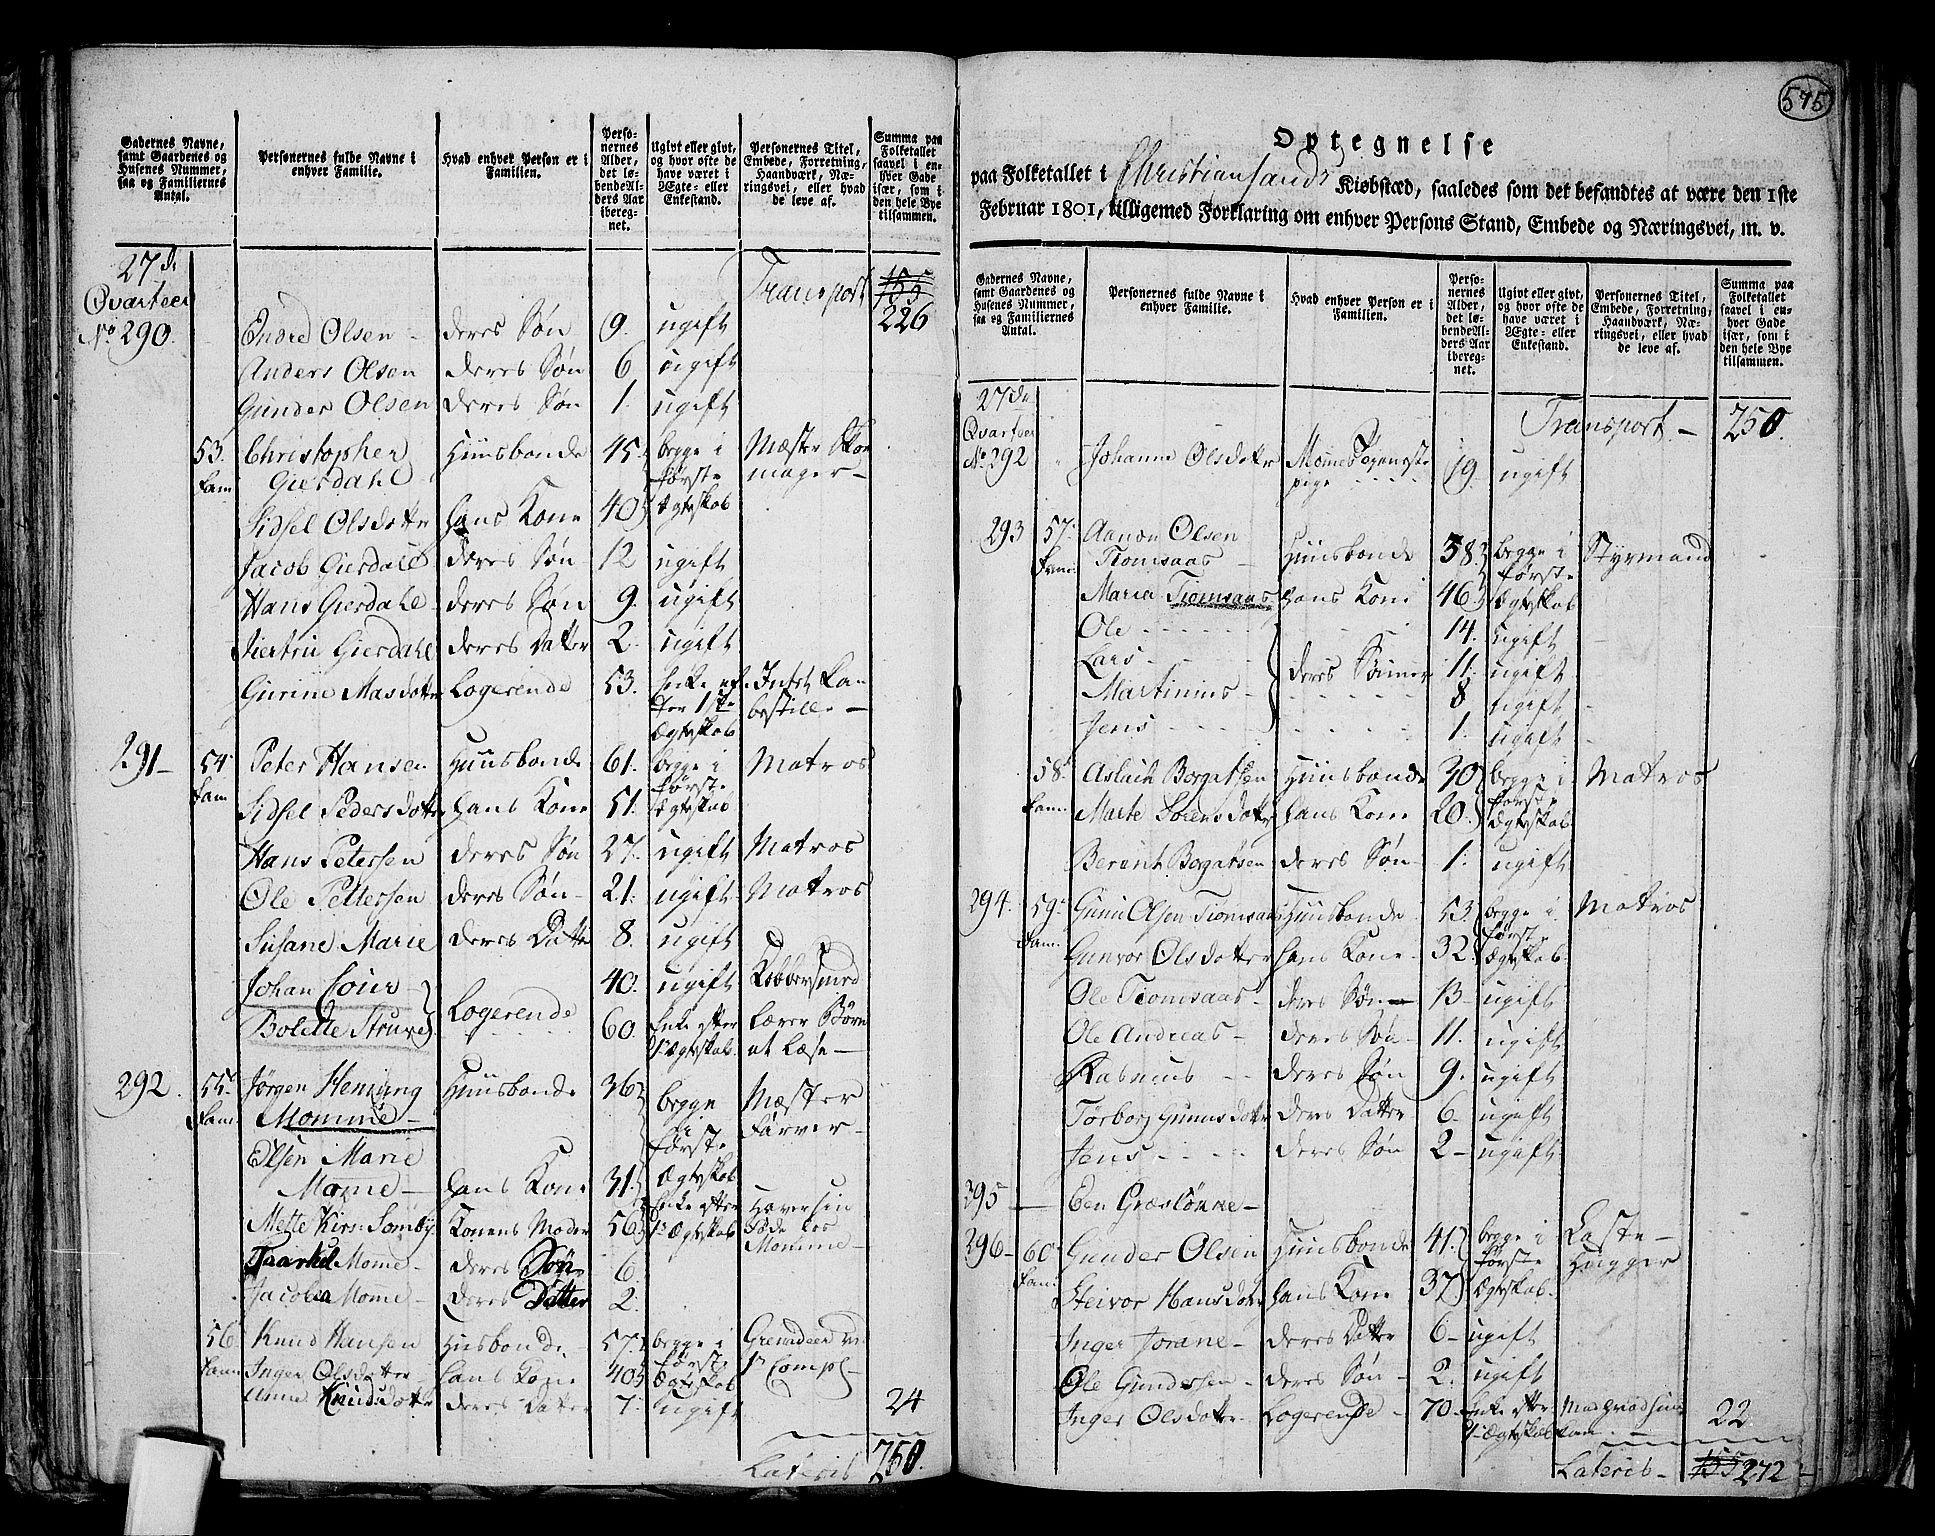 Gadernes Navne, samt Gaardenes og Husenes Nummer, saa og Familiernes Antal.
Personernes fulde Navne i enhver Familie.
Hvad enhver Person er i Familien.
Personernes Alder, det løbende Alders Aar iberegnet.
Ugivt eller givt, og hvor ofte de have været i Ægte- eller Enkestand.
Personernes Titel, Embede, Forretning, Haandværk, Næringsvei, eller hvad de leve af.
Summa paa Folketallet saavel i enhver Gade især, som i den hele Bye tilsammen.
27de Qvarteer Transport 155
No 290. Endre Olsen - deres Søn 9. ugift 226
Anders Olsen deres Søn 6 ugift
Gunder Olsen deres Søn 1. ugift
53. Fam Christopher Gierdahl Huusbonde 45. begge i første Ægteskab Mæster Skomager -
Sidsel Olsdotter hans Kone 40
Jacob Gierdahl deres Søn 12 ugift
Hans Gierdahl deres Søn 9. ugift
Siertru Gierdahl deres Datter 2. ugift
Gurine Masdotter Logerende 53. Enke efter 1ste Ægteskab Intet kan bestille -
291 - 54 Fam Peter Hansen Huusbonde 61. begge i første Ægteskab Matros
Sidsel Pedersdotter hans Kone 51.
Hans Petersen deres Søn 27. ugift Matros
Ole Pettersen deres Søn - 21. ugift Matros
Susane Marie deres Datter 8. ugift
Johan Cour - Logerende 40. ugift Kobbersmed
Bolette Struve 60. Enke efter 1. Ægteskab lærer Børn at læse -
292. 55 Fam. Jørgen Heming Momme - Huusbonde 36 begge i første Ægteskab Mæster Farver -
Elsen Marie Mome - hans Kone 31.
Mette Kirst. Somby Konens Moder 56 Enke efter 1. Ægteskab Haver sin Føde hos Momme -
Taarkel Mome - deres Søn 6
Jacobea Mome - deres Datter 2.
56 Fam Knud Hansen Husbonde 57. begge i første Ægteskab Grenadeer ved 1. Comp. -
Inger Olsdatter hans Kone 40
Anne Knudsdotter deres Datter 7. ugift 24
Lateris 250.
575
Optegnelse
paa Folketallet i Christiansands Kiøbstæd, saaledes som det befandtes at være den 1ste
Februar 1801, tilligemed Forklaring om enhver Persons Stand, Embede og Næringsvei, m. v.
Gadernes Navne, samt Gaardenes og Husenes Nummer, saa og Familiernes Antal.
Personernes fulde Navne i enhver Familie.
Hvad enhver Person er i Familien.
Personernes Alder, det løbende Alders Aar iberegnet.
Ugivt eller givt, og hvor ofte de have været i Ægte- eller Enkestand.
Personernes Titel, Embede, Forretning, Haandværk, Næringsvei, eller hvad de leve af.
Summa paa Folketallet saavel i enhver Gade især, som i den hele Bye tilsammen.
27de Qvarteer Transport - 250.
No 292 Johanne Olsdotter Momes Tjenestepige 19. ugift
293 57. Fam: Aanon Olsen Tiomsaas - Huusbonde 38. begge i første Ægteskab Styrmand
Maria Tiomsaas hans Kone 46
Ole - - - - deres Sønner 14. ugift
Lars - - - 11. ugift
Martinius - 8 ugift
Jens - - - 1. ugift
58. Fam: Aslach Borgersen Huusbonde 30 begge i første Ægteskab Matros
Marte Sørensdotter hans Kone 26.
Berent Borgersen deres Søn - 1. ugift
294. 59. Fam: Gunu Olsen Tiomsaas Huusbonde 53. begge i første Ægteskab Matros
Gunvor Olsdotter hans Kone - 32
Ole Tiomsaas - deres Søn - 13 - ugift
Ole Andreas - deres Søn - 11. ugift
Rasmus - - deres Søn 9. ugift
Torborg Gunusdotter deres Datter 6 - ugift
Jens - - - - deres Søn 2 - ugift
295 - Een Græsløkke -
296 - 60 Fam: Gunder Olsen Huusbonde 41. begge i første Ægteskab Laste - Hugger
Steivor Hansdotter hans Kone 37
Inger Jorane - deres Datter 6 - ugift
Ole Gundersen - deres Søn - 2. ugift
Inger Olsdotter - Logerende - 70 - Enke efter 1. Ægteskab 22.
Lateris - 155 272 -